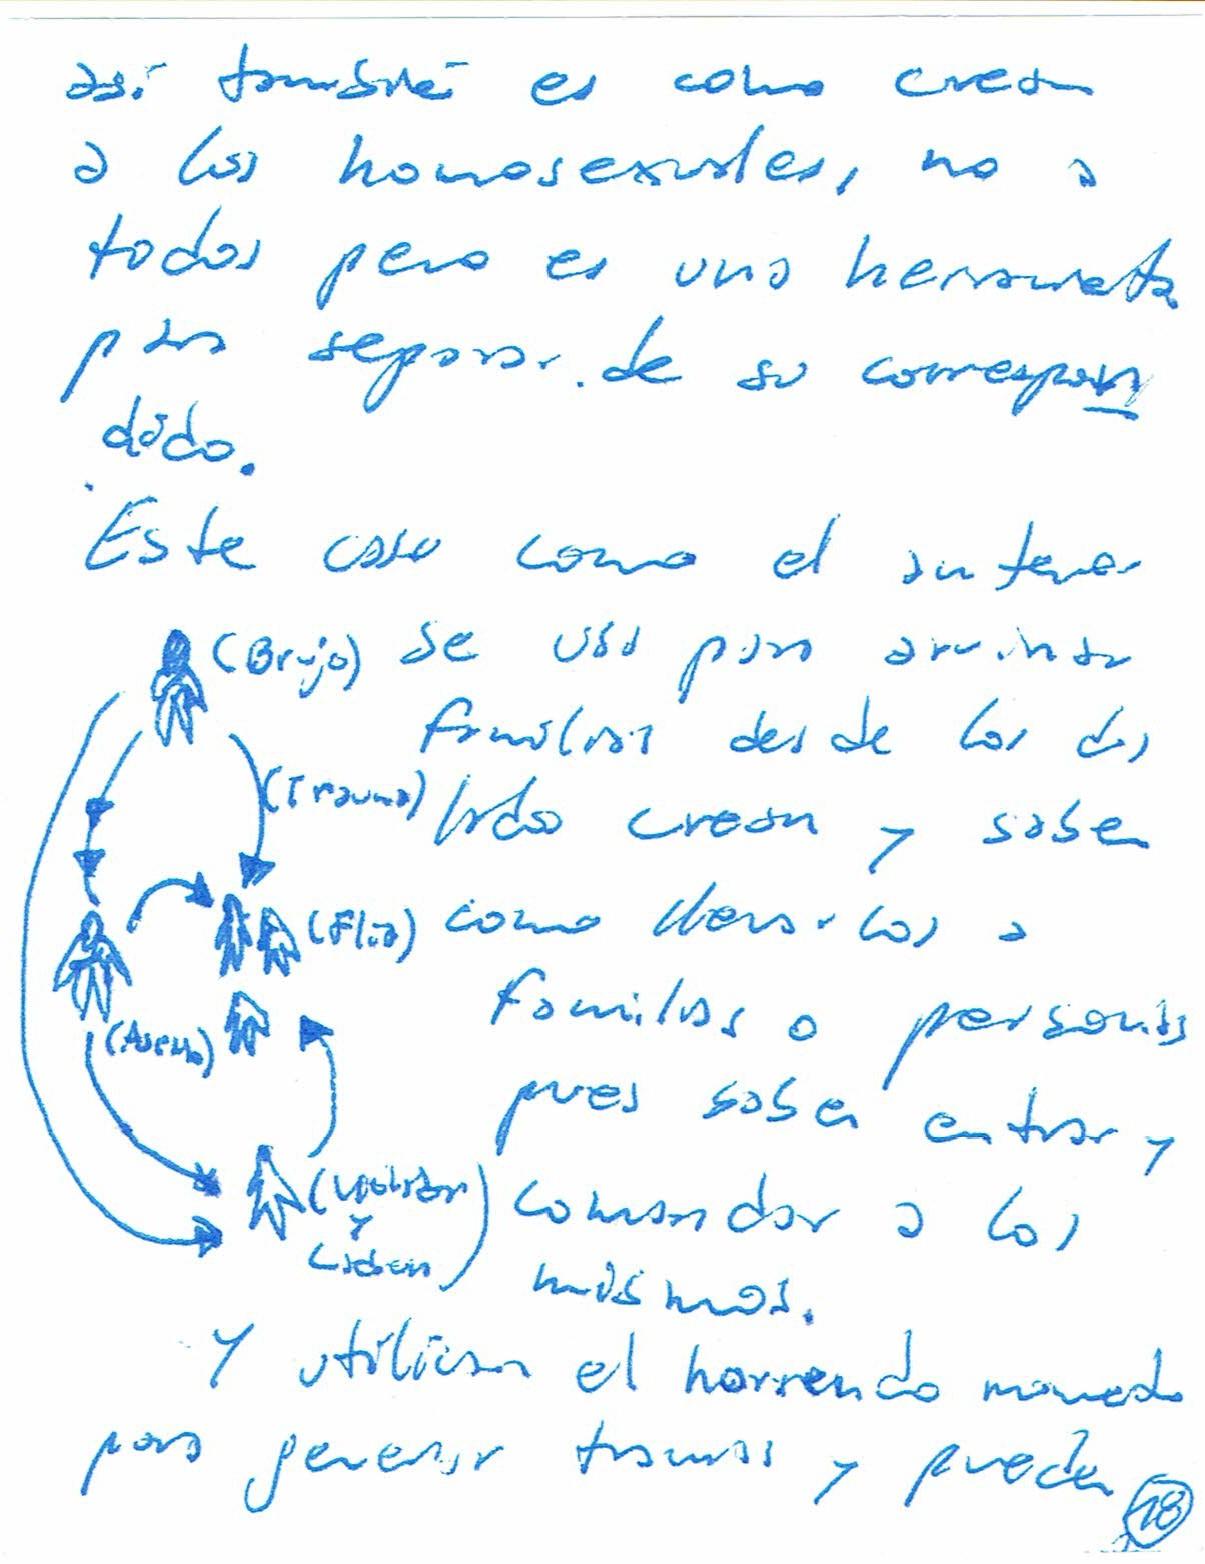 así también es como crean
a los homosexuales, no a
todos pero es una herramienta
para separar de su correspon
dido.
Este caso como el anterior
(Brujo) se usa para arruinar
familias desde los dos
(Trauma) lados crean y saben
(Flia) como llevarlos a
familias o personas
(Asesino)
pues saben entrar y
(Violador comandar a los
y
Ladrón) mismos.
Y utilizan el horrendo
para generar traumas y pueden
18